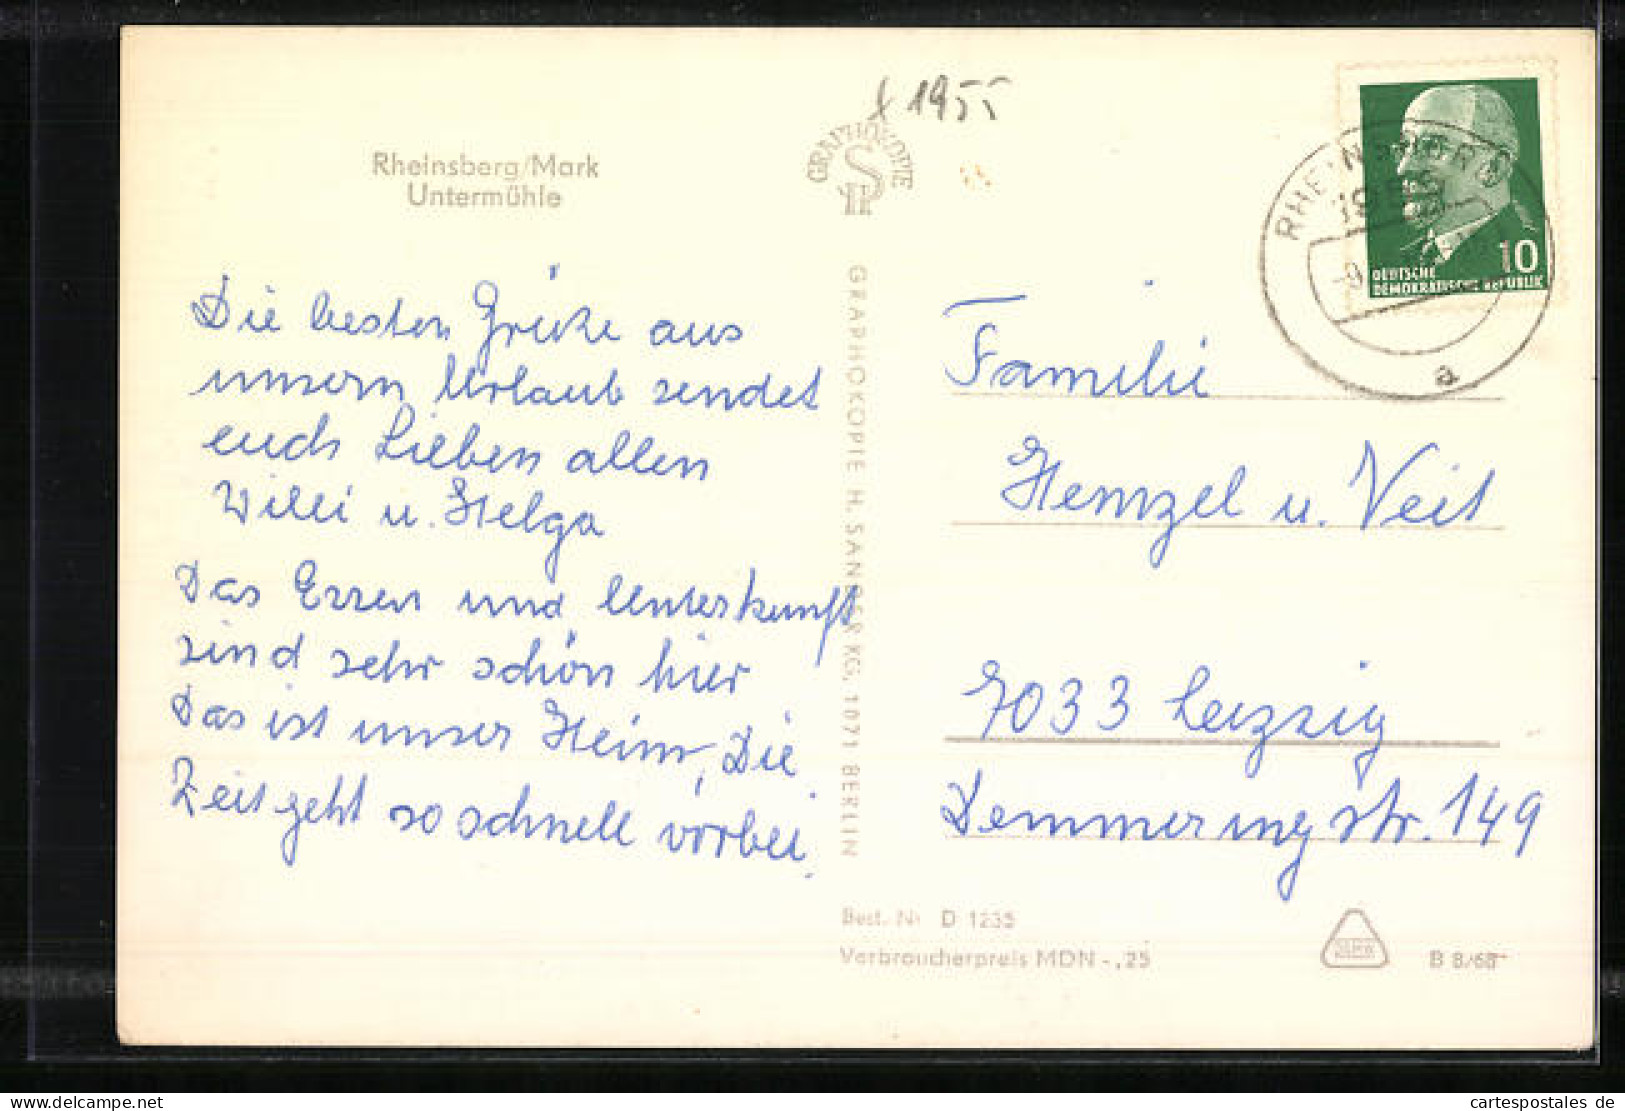 x 1955
Rheinsberg/Mark
Untermühle
GRAPHOKOPIE
HS
Die besten Grüße aus
unsern Urlaub sendet
euch Lieben allen
Willi u. Helga
Das Essen und Unterkunft
sind sehr schön hier
Das ist unser Heim, Die
Zeit geht so schnell vorbei.
GRAPHOKOPIE H. SANDER KG, 1071 BERLIN
RHEINSBERG
1955
a
10
DEUTSCHE
DEMOKRATISCHE REPUBLIK
Familie
Hemzel u. Veit
7033 Leipzig
Demmeringstr. 149
Best. Nr. D 1235
Verbraucherpreis MDN -,25
B 8/68
cartespostales de